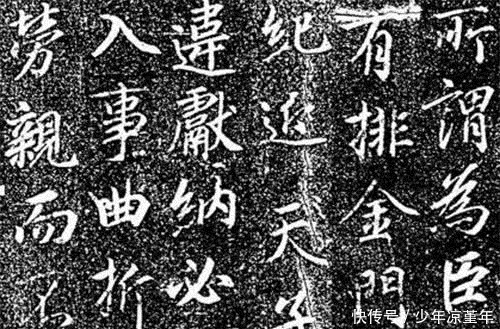 所謂為臣
有排金門
紀天子
違獻納必
入事曲折
勞親而
快传号/少年凉董年